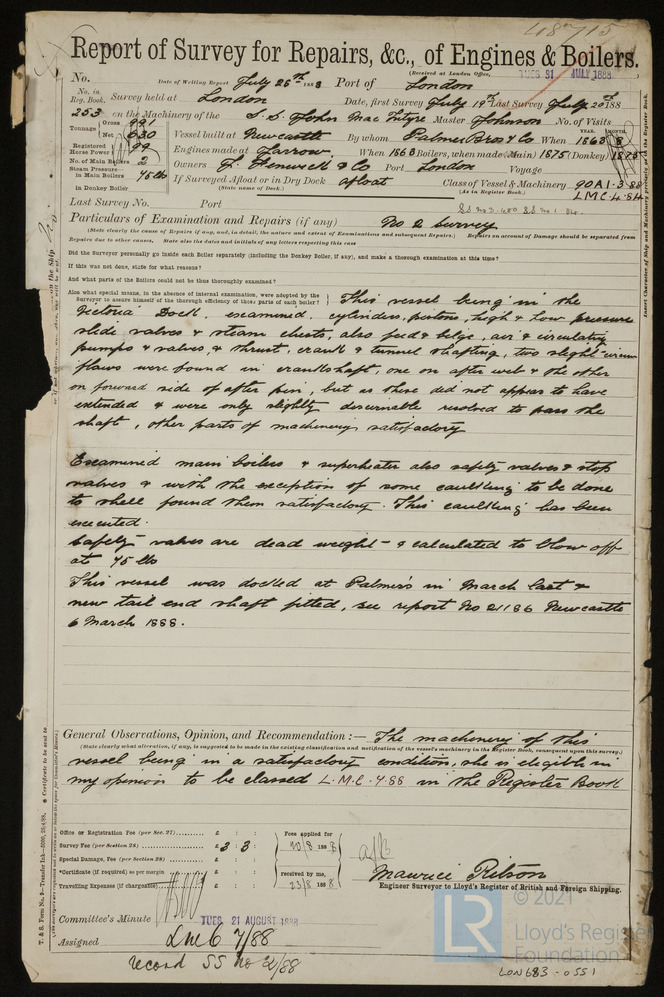 48715
Report of Survey for Repairs, &c., of Engines & Boilers.
(Received at London Office, TUES 31 JULY 1888
No. Date of Writing Report July 26th 1888 Port of London
No. in Reg. Book. Survey held at London Date, first Survey July 19th Last Survey July 20th 188
253 on the Machinery of the S.S. John Mac Intyre Master Johnson No. of Visits
Tonnage Gross 991 Net 630 Vessel built at Newcastle By whom Palmer Bros & Co When YEAR. 1863 MONTH. 8
Registered Horse Power 99 Engines made at Jarrow When 1863 Boilers, when made (Main) 1875 (Donkey) 1875
No. of Main Boilers 2 Owners J. Fenwick & Co Port London Voyage
Steam Pressure in Main Boilers 45 lbs If Surveyed Afloat or in Dry Dock afloat Class of Vessel & Machinery 90 A1 3.88
in Donkey Boiler (State name of Dock.) (As in Register Book.) LMC 4.84
Last Survey No. Port
Particulars of Examination and Repairs (if any) No 2 Survey
(State clearly the cause of Repairs if any, and, in detail, the nature and extent of Examinations and subsequent Repairs.) Repairs on account of Damage should be separated from
Repairs due to other causes. State also the dates and initials of any letters respecting this case
Did the Surveyor personally go inside each Boiler separately (including the Donkey Boiler, if any), and make a thorough examination at this time?
If this was not done, state for what reasons?
And what parts of the Boilers could not be thus thoroughly examined?
Also what special means, in the absence of internal examination, were adopted by the Surveyor to assure himself of the thorough efficiency of those parts of each boiler? This vessel being in the
Victoria Dock, examined cylinders, pistons, high & low pressure
slide valves & steam chests, also feed & bilge, air & circulating
pumps & valves, & thrust, crank & tunnel shafting, two slight
flaws were found in crankshaft, one on after web & the other
on forward side of after pin, but as these did not appear to have
extended & were only slightly discernable resolved to pass the
shaft, other parts of machinery satisfactory
Examined main boilers & superheater also safety valves & stop
valves & with the exception of some caulking to be done
to shell found them satisfactory. This caulking has been
executed.
Safety valves are dead weight & calculated to blow off
at 45 lbs
This vessel was docked at Palmer's in March last &
new tail end shaft fitted, see report No 21186 Newcastle
6 March 1888.
General Observations, Opinion, and Recommendation :— The machinery of this
(State clearly what alteration, if any, is suggested to be made in the existing classification and notification of the vessel's machinery in the Register Book, consequent upon this survey.)
vessel being in a satisfactory condition, she is eligible in
my opinion to be classed L.M.C. 7.88 in the Register Book
Office or Registration Fee (per Sec. 27) £ : : Fees applied for
Survey Fee (per Section 28) £ 3 : 3 : 10/8 1888
Special Damage Fee (per Section 28) £ : :
*Certificate (if required) as per margin £ : : received by me,
Travelling Expenses (if chargeable) £ : : 23/8 1888
Maurice Ritson
Engineer Surveyor to Lloyd's Register of British and Foreign Shipping.
Committee's Minute TUES 21 AUGUST 1888
Assigned LMC 7/88
record SS No 2/88
© 2021
LR Lloyd's Register
Foundation
LON683-0551